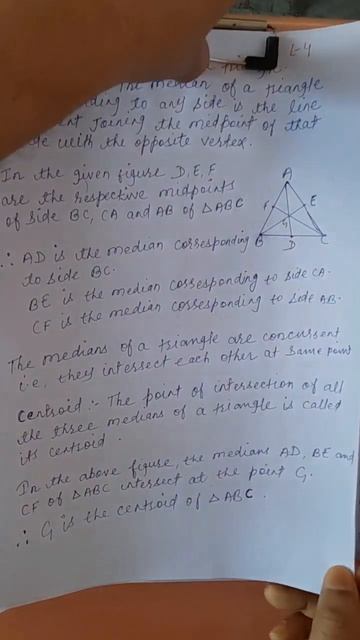 L-4
The median of a triangle
to any side is the line
joining the midpoint of that
with the opposite vertex.
In the given figure D, E, F
are the respective midpoints
of side BC, CA and AB of △ABC
A
F
E
G
B
D
C
∴ AD is the median corresponding
to side BC.
BE is the median corresponding to side CA.
CF is the median corresponding to side AB.
The medians of a triangle are concurrent
i.e., they intersect each other at same point
Centroid :- The point of intersection of all
the three medians of a triangle is called
its centroid.
In the above figure, the medians AD, BE and
CF of △ABC intersect at the point G.
∴ G is the centroid of △ABC.